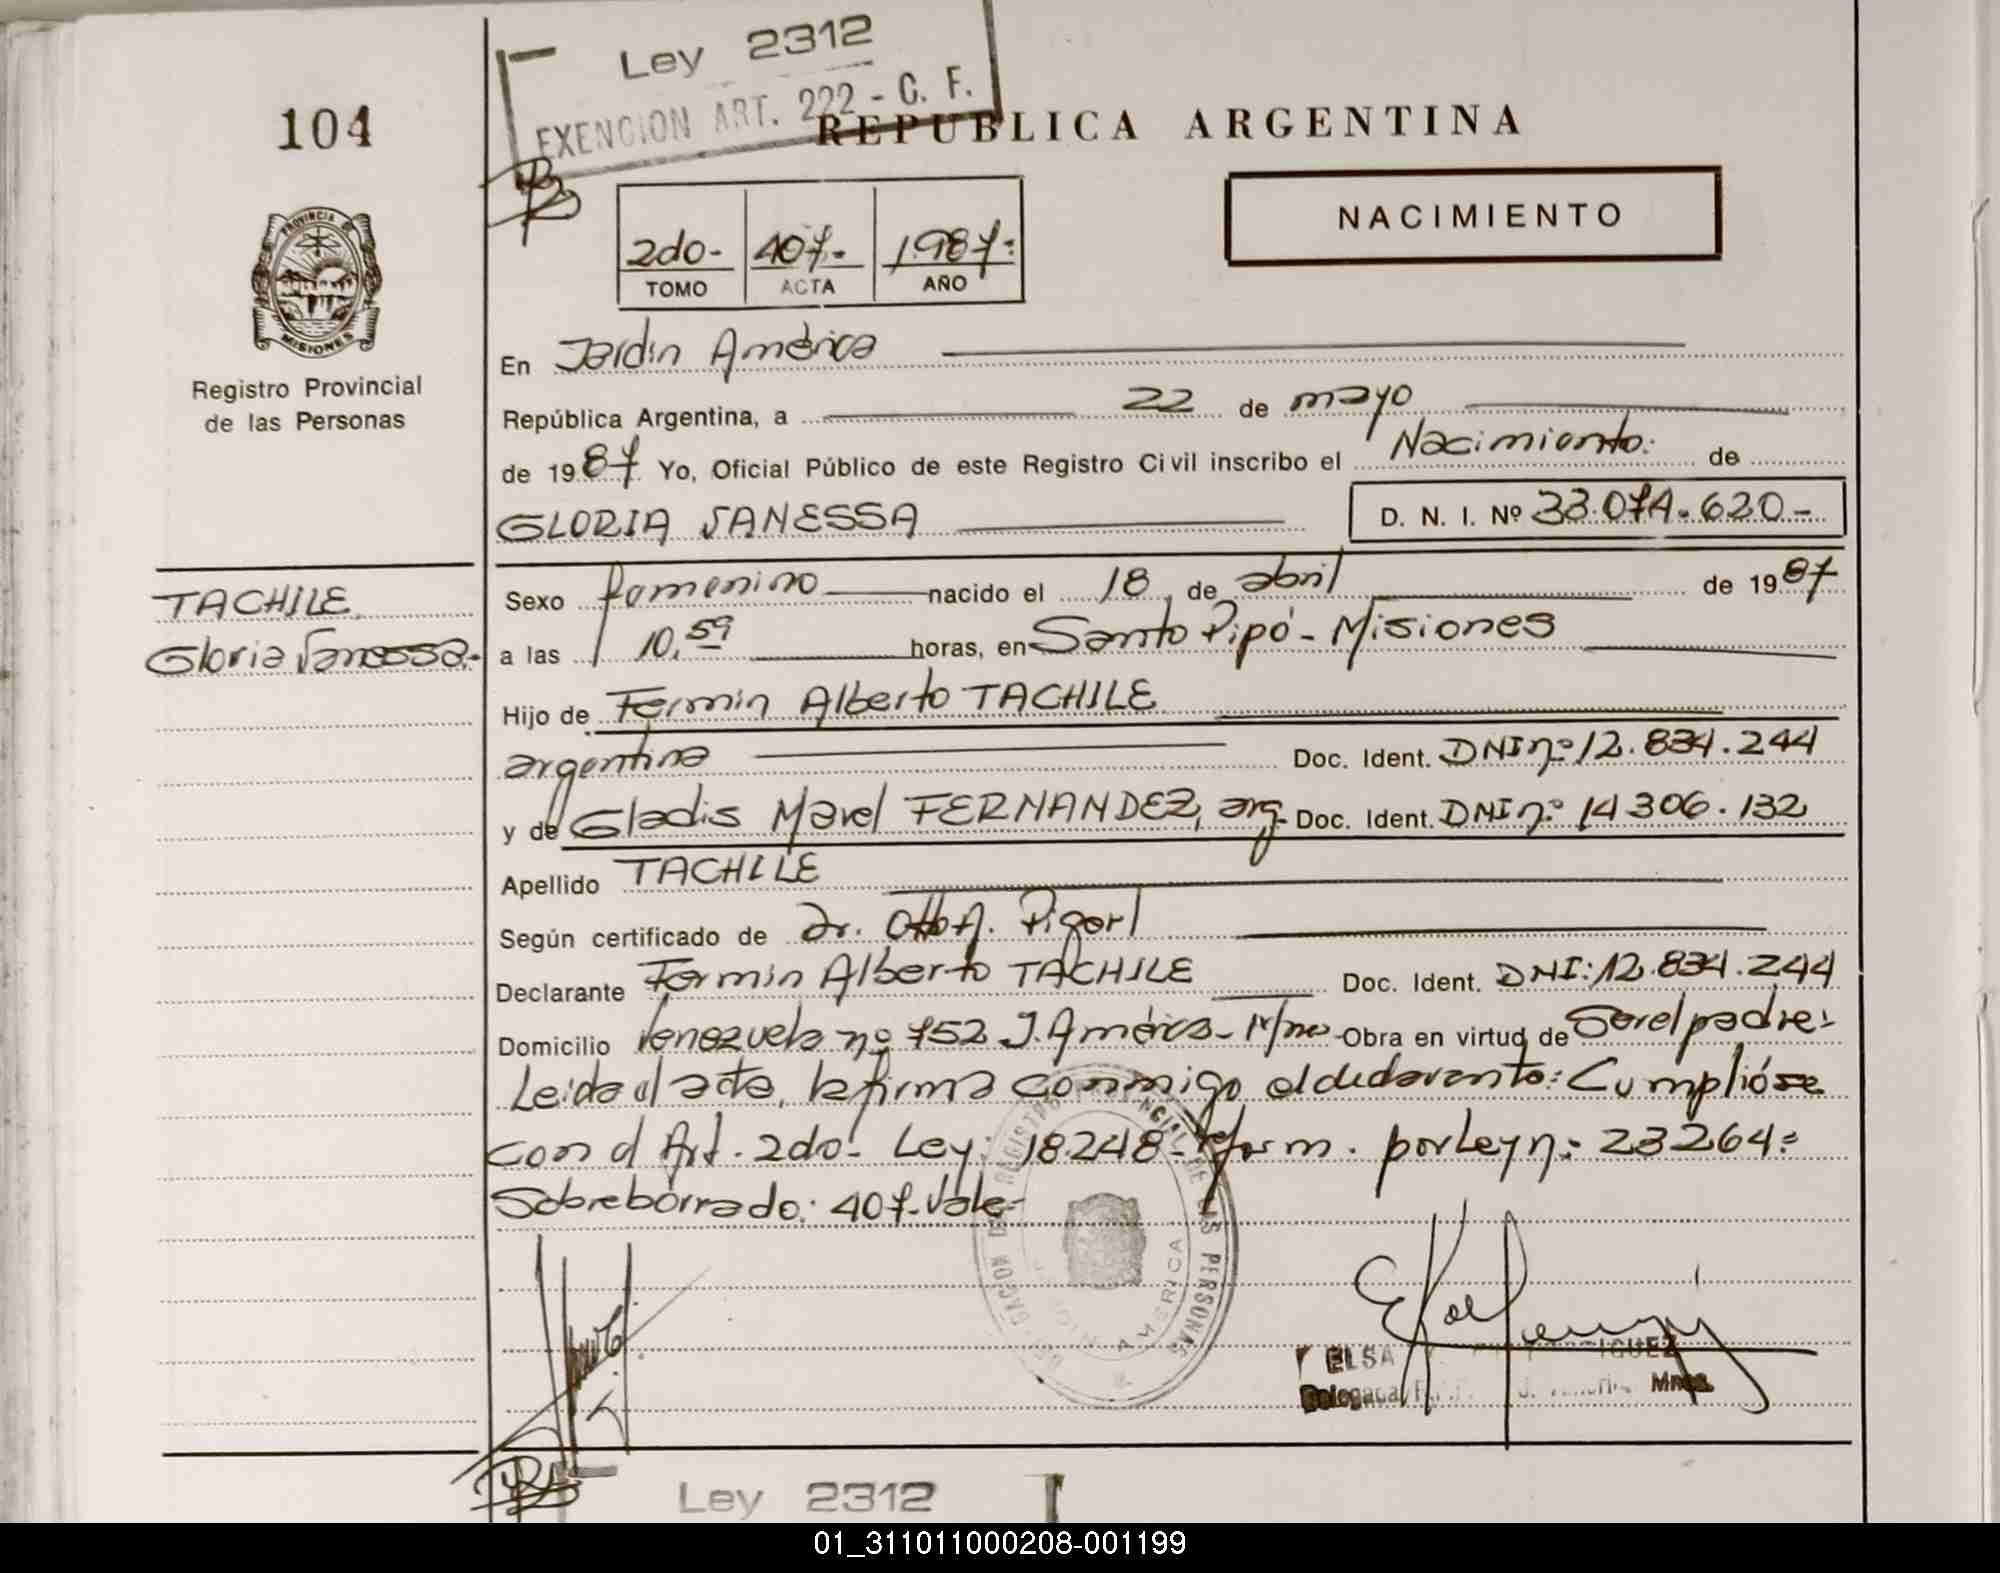 Ley 2312
EXENCION ART. 222 - C. F.
104
REPUBLICA ARGENTINA
NACIMIENTO
2do- 407.- 1.987:
TOMO ACTA AÑO
PROVINCIA
MISIONES
Registro Provincial
de las Personas
En Jardin América
República Argentina, a 22 de mayo
de 1987 Yo, Oficial Público de este Registro Civil inscribo el Nacimiento: de
GLORIA VANESSA D. N. I. Nº 33.074.620-
TACHILE
Gloria Vanessa.-
Sexo femenino nacido el 18 de abril de 1987
a las 10,59 horas, en Santo Pipó - Misiones
Hijo de Fermin Alberto TACHILE
argentina Doc. Ident. DNI nº 12.834.244
y de Gladis Mavel FERNANDEZ, arg. Doc. Ident. DNI nº 14306.132
Apellido TACHILE
Según certificado de Dr. Otto A.
Declarante Fermin Alberto TACHILE Doc. Ident. DNI: 12.834.244
Domicilio Venezuela nº 752 J. América - M/nes - Obra en virtud de Ser el padre:
Leida el acta, la firma conmigo el declarante: Cumplióse
con el Art. 2do- Ley: 18.248- reform. por Ley n: 23264:
Sobreborrado: 407- Vale-
REGISTRO PROVINCIAL DE LAS PERSONAS
AMERICA
ELSA
Mnes.
Ley 2312
01_311011000208-001199